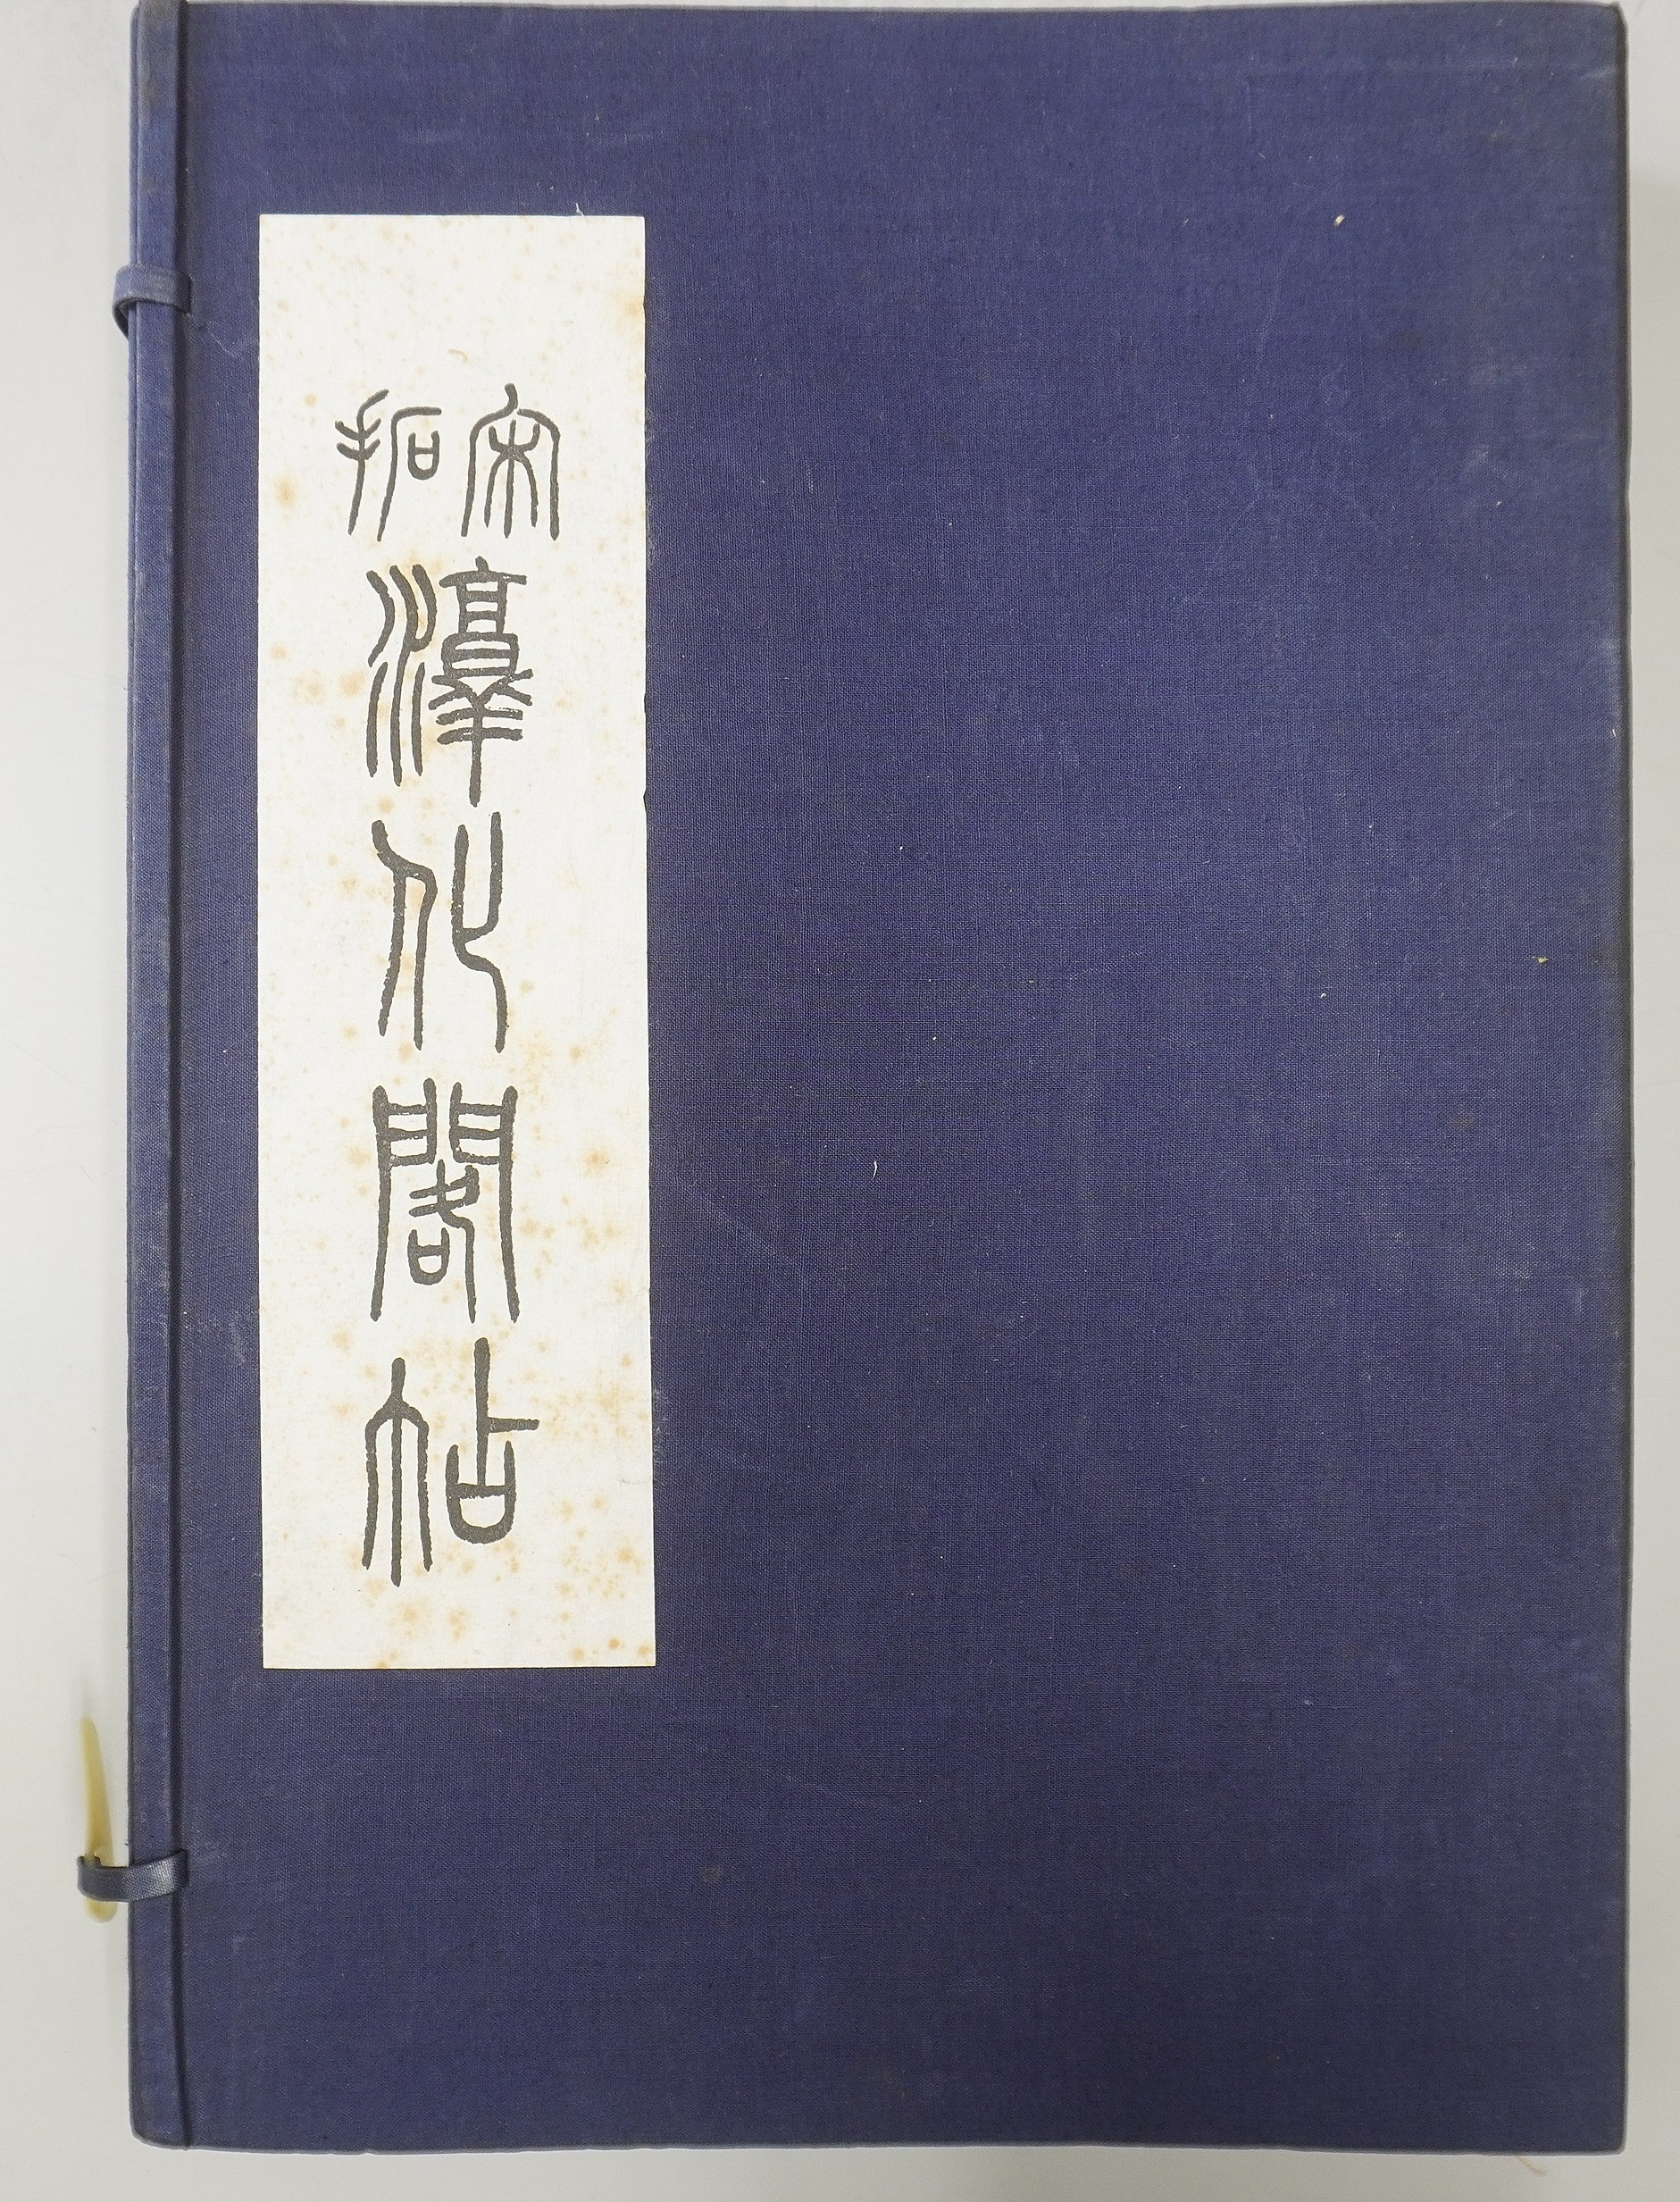 宋拓
淳化閣帖